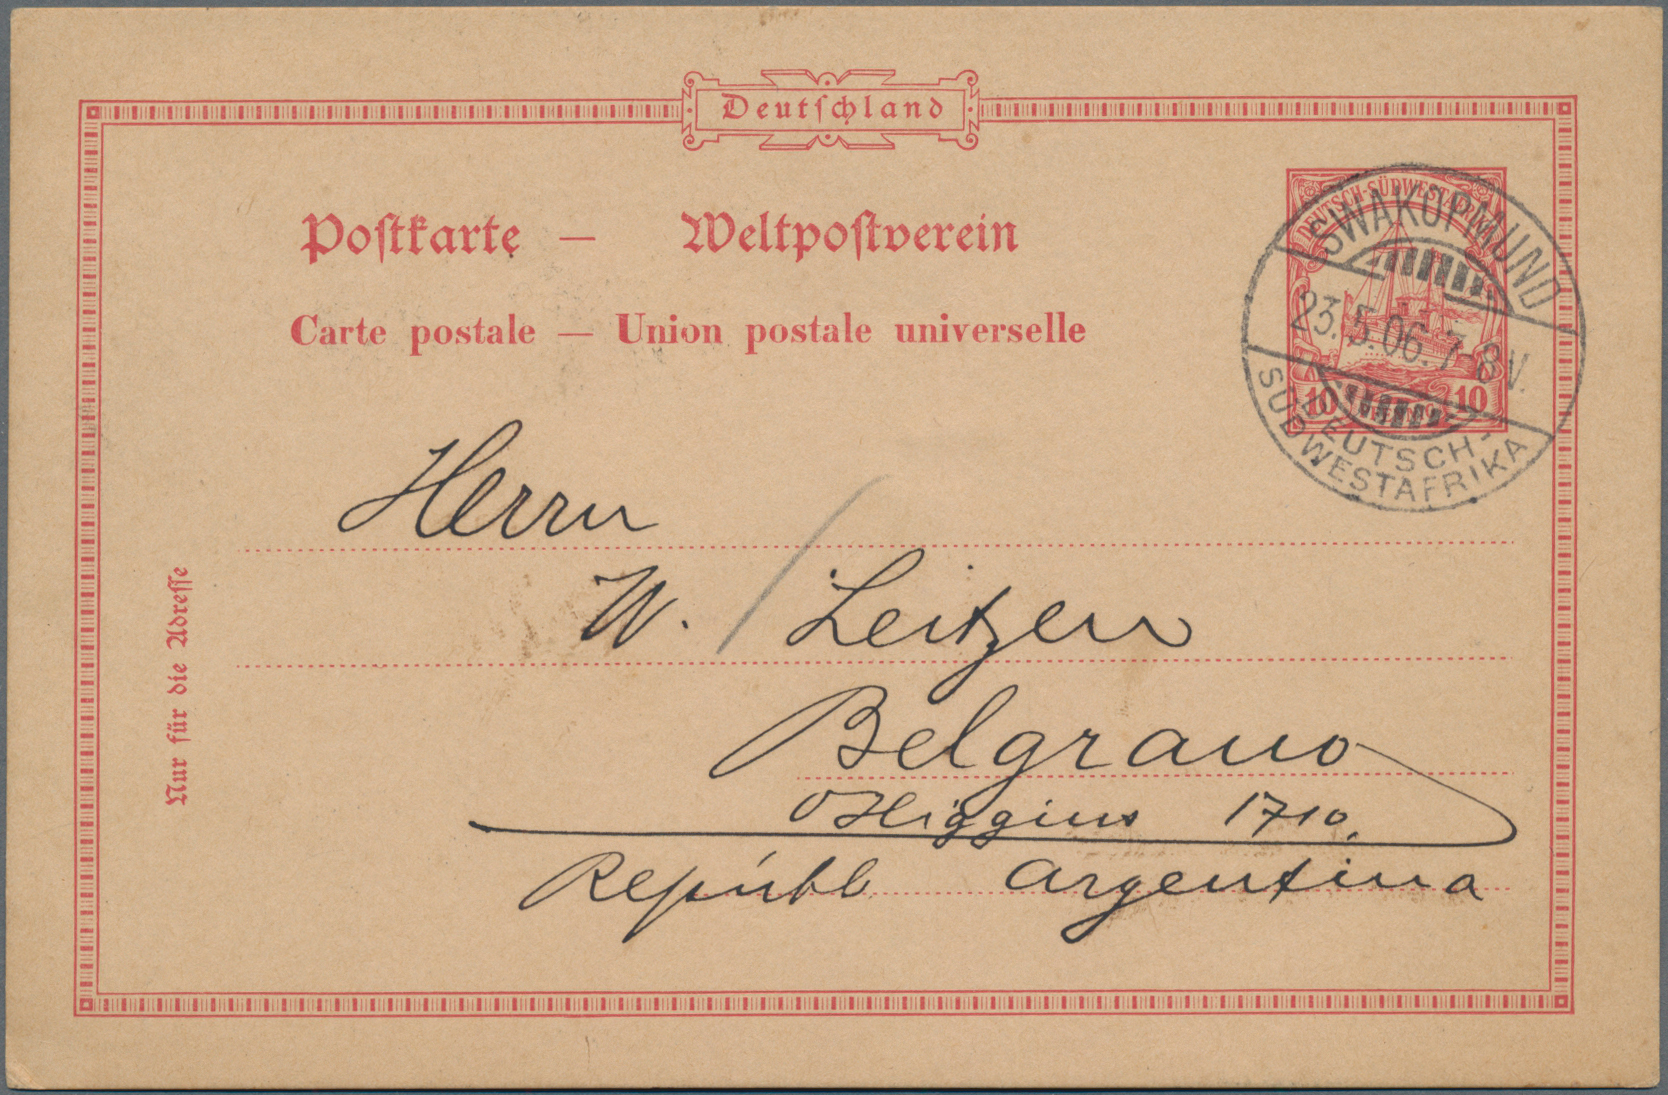 Deutschland
Postkarte — Weltpostverein
Carte postale — Union postale universelle
DEUTSCH-SÜDWESTAFRIKA
10 PFENNIG 10
SWAKOPMUND
23.5.06. 7-8V.
DEUTSCH-
SÜDWESTAFRIKA
Nur für die Adresse
Herrn
W. Leitzen
Belgrano
O'Higgins 1710.
Repúbl Argentina